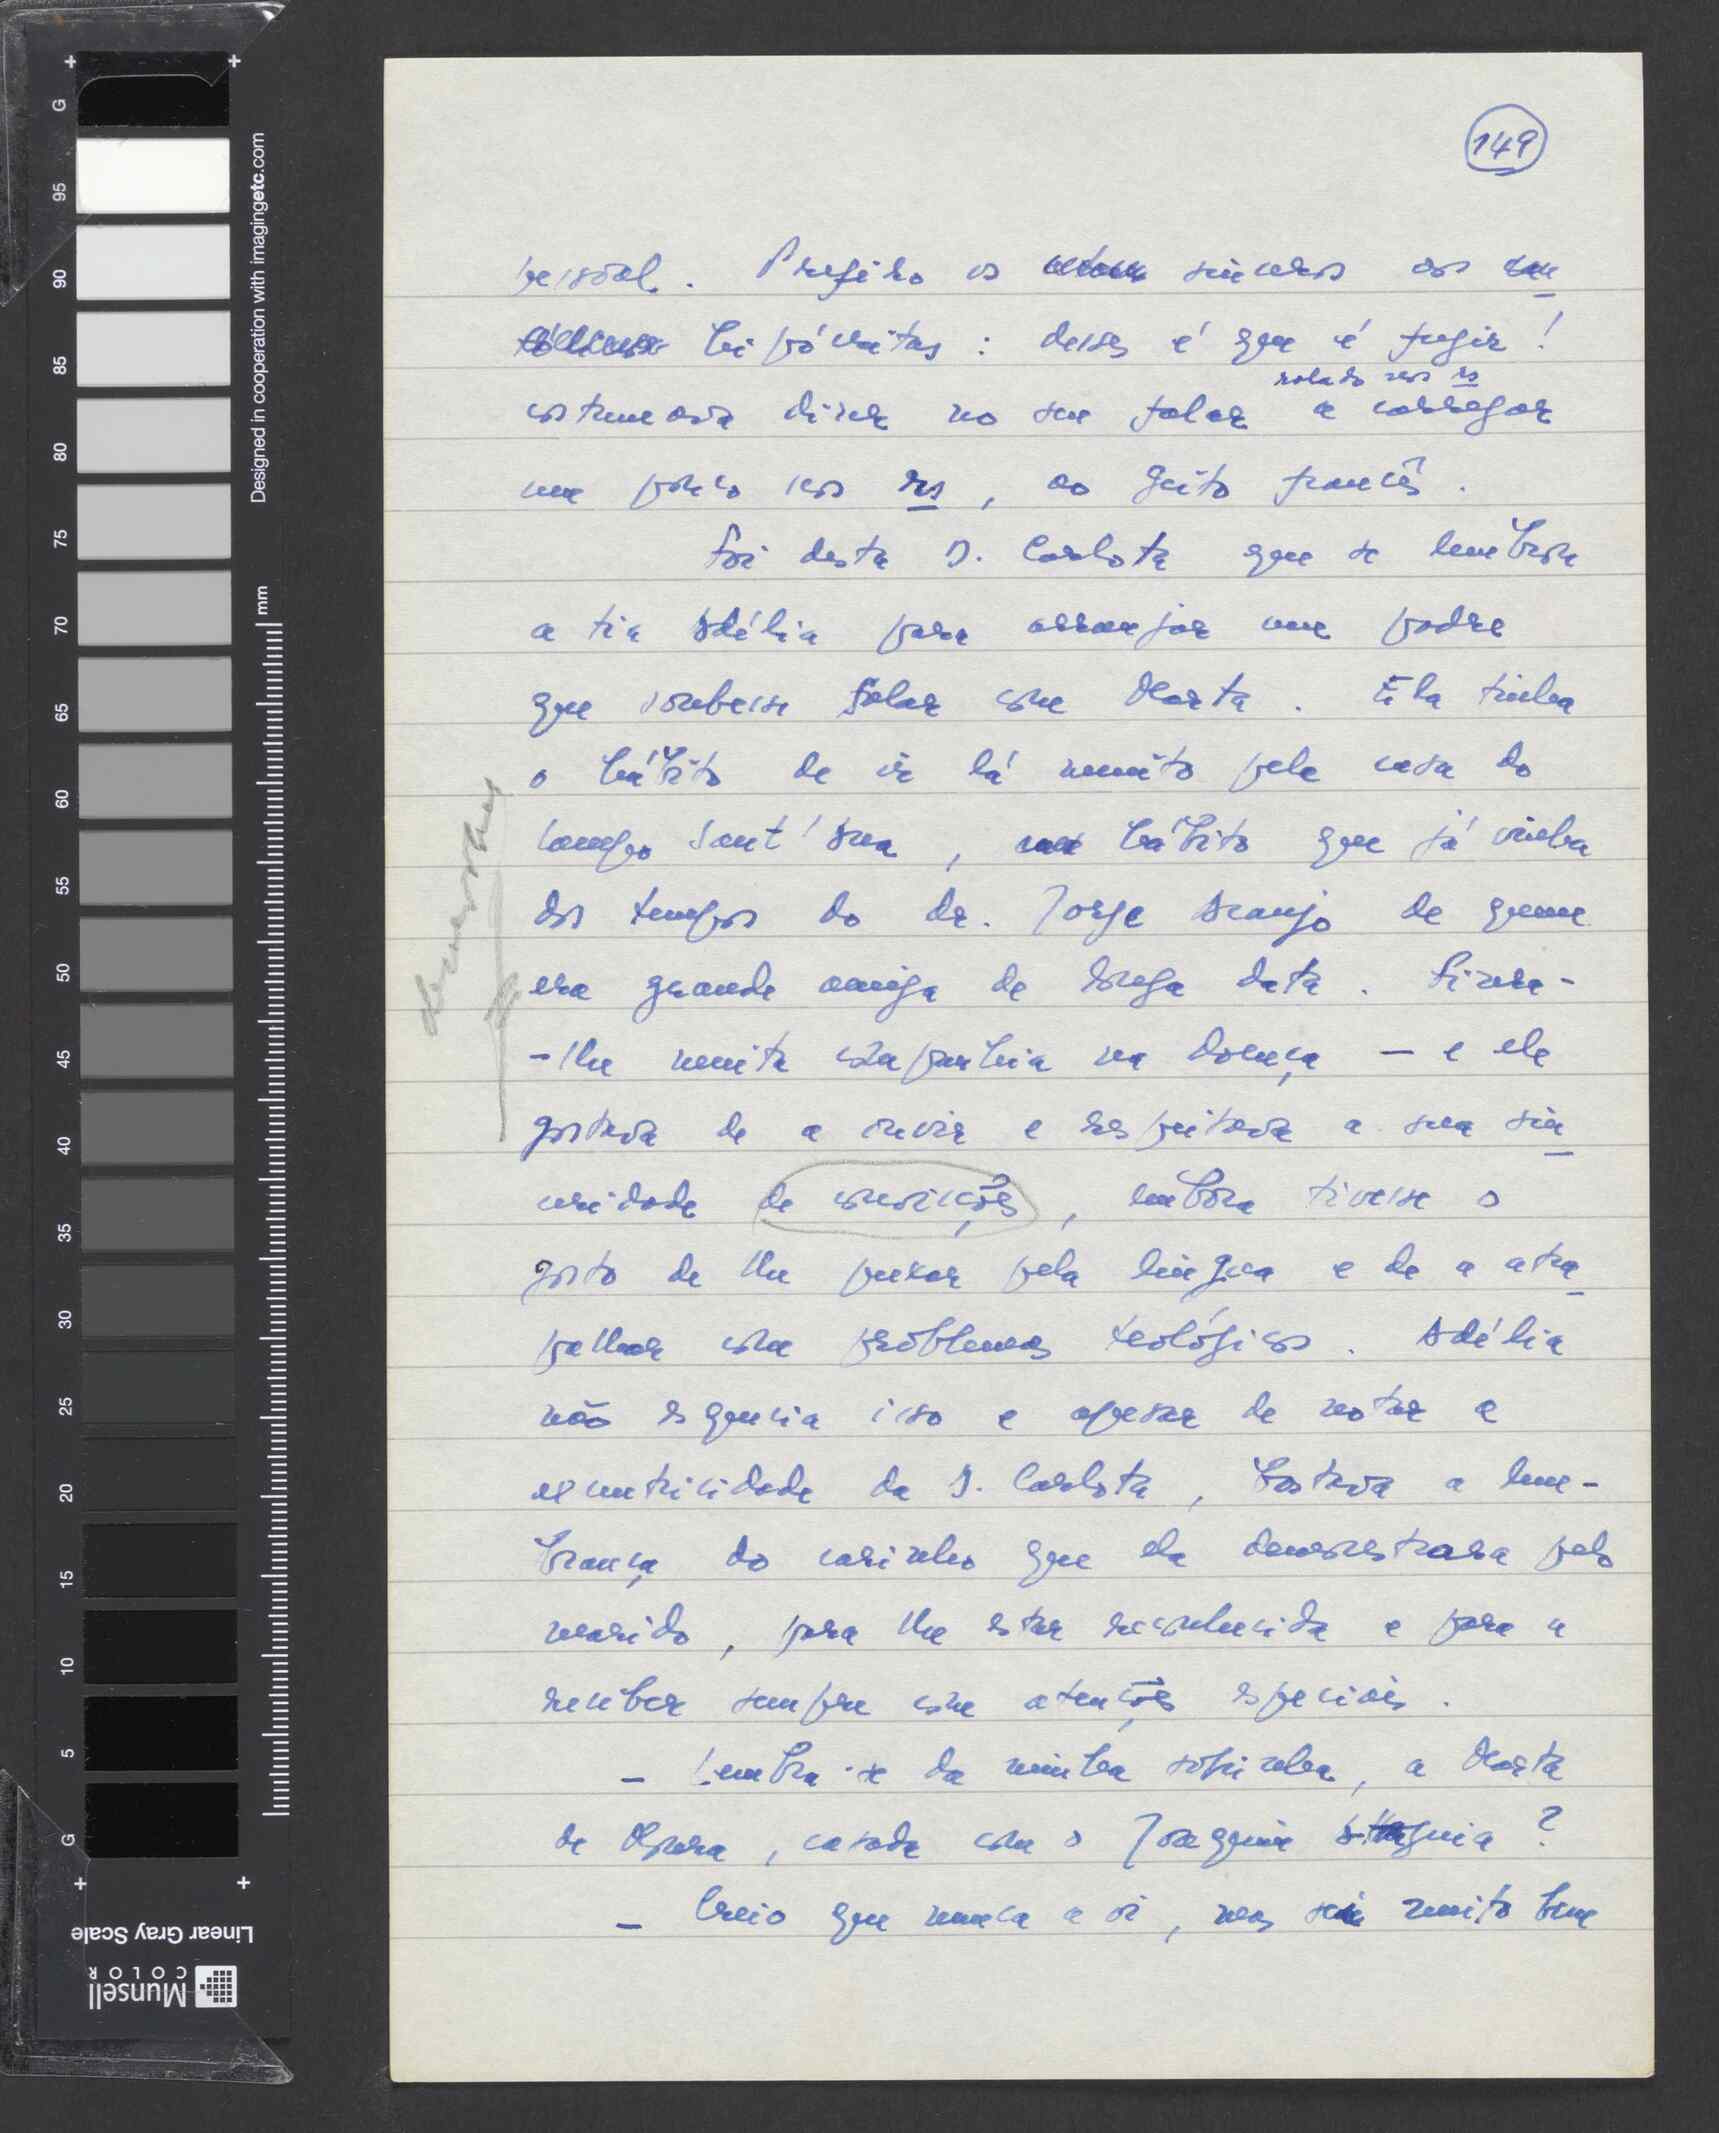 149
pessoal. Prefiro os sinceros aos
hipócritas: desses é que é fugir!
rolado nos rs
costumava dizer no seu falar a carregar
um pouco nos rs, ao jeito francês.
Foi desta D. Carlota que se lembrou
a tia Adélia para arranjar um padre
que soubesse falar com Marta. Ela tinha
o hábito de ir lá muito pela casa do
Campo Sant'Ana, hábito que já vinha
dos tempos do dr. Jorge Araujo de quem
era grande amiga de longa data. Fizera-
-lhe muita companhia na doença — e ele
gostava de a ouvir e respeitava a sua sin
ceridade de convicções, embora tivesse o
gosto de lhe puxar pela língua e de a atra
palhar com problemas teológicos. Adélia
não esquecia isso e apesar de notar a
excentricidade da D. Carlota, bastava a lem-
brança do carinho que ela demonstrara pelo
marido, para lhe estar reconhecida e para a
receber sempre com atenções especiais.
— Lembra-se da minha sobrinha, a Marta
de Moura, casada com o Joaquim
— Creio que nunca a vi, mas sei muito bem
Designed in cooperation with imagingetc.com
mm
G
95
90
85
80
75
70
65
60
55
50
45
40
35
30
25
20
15
10
5
G
Linear Gray Scale
Munsell
COLOR